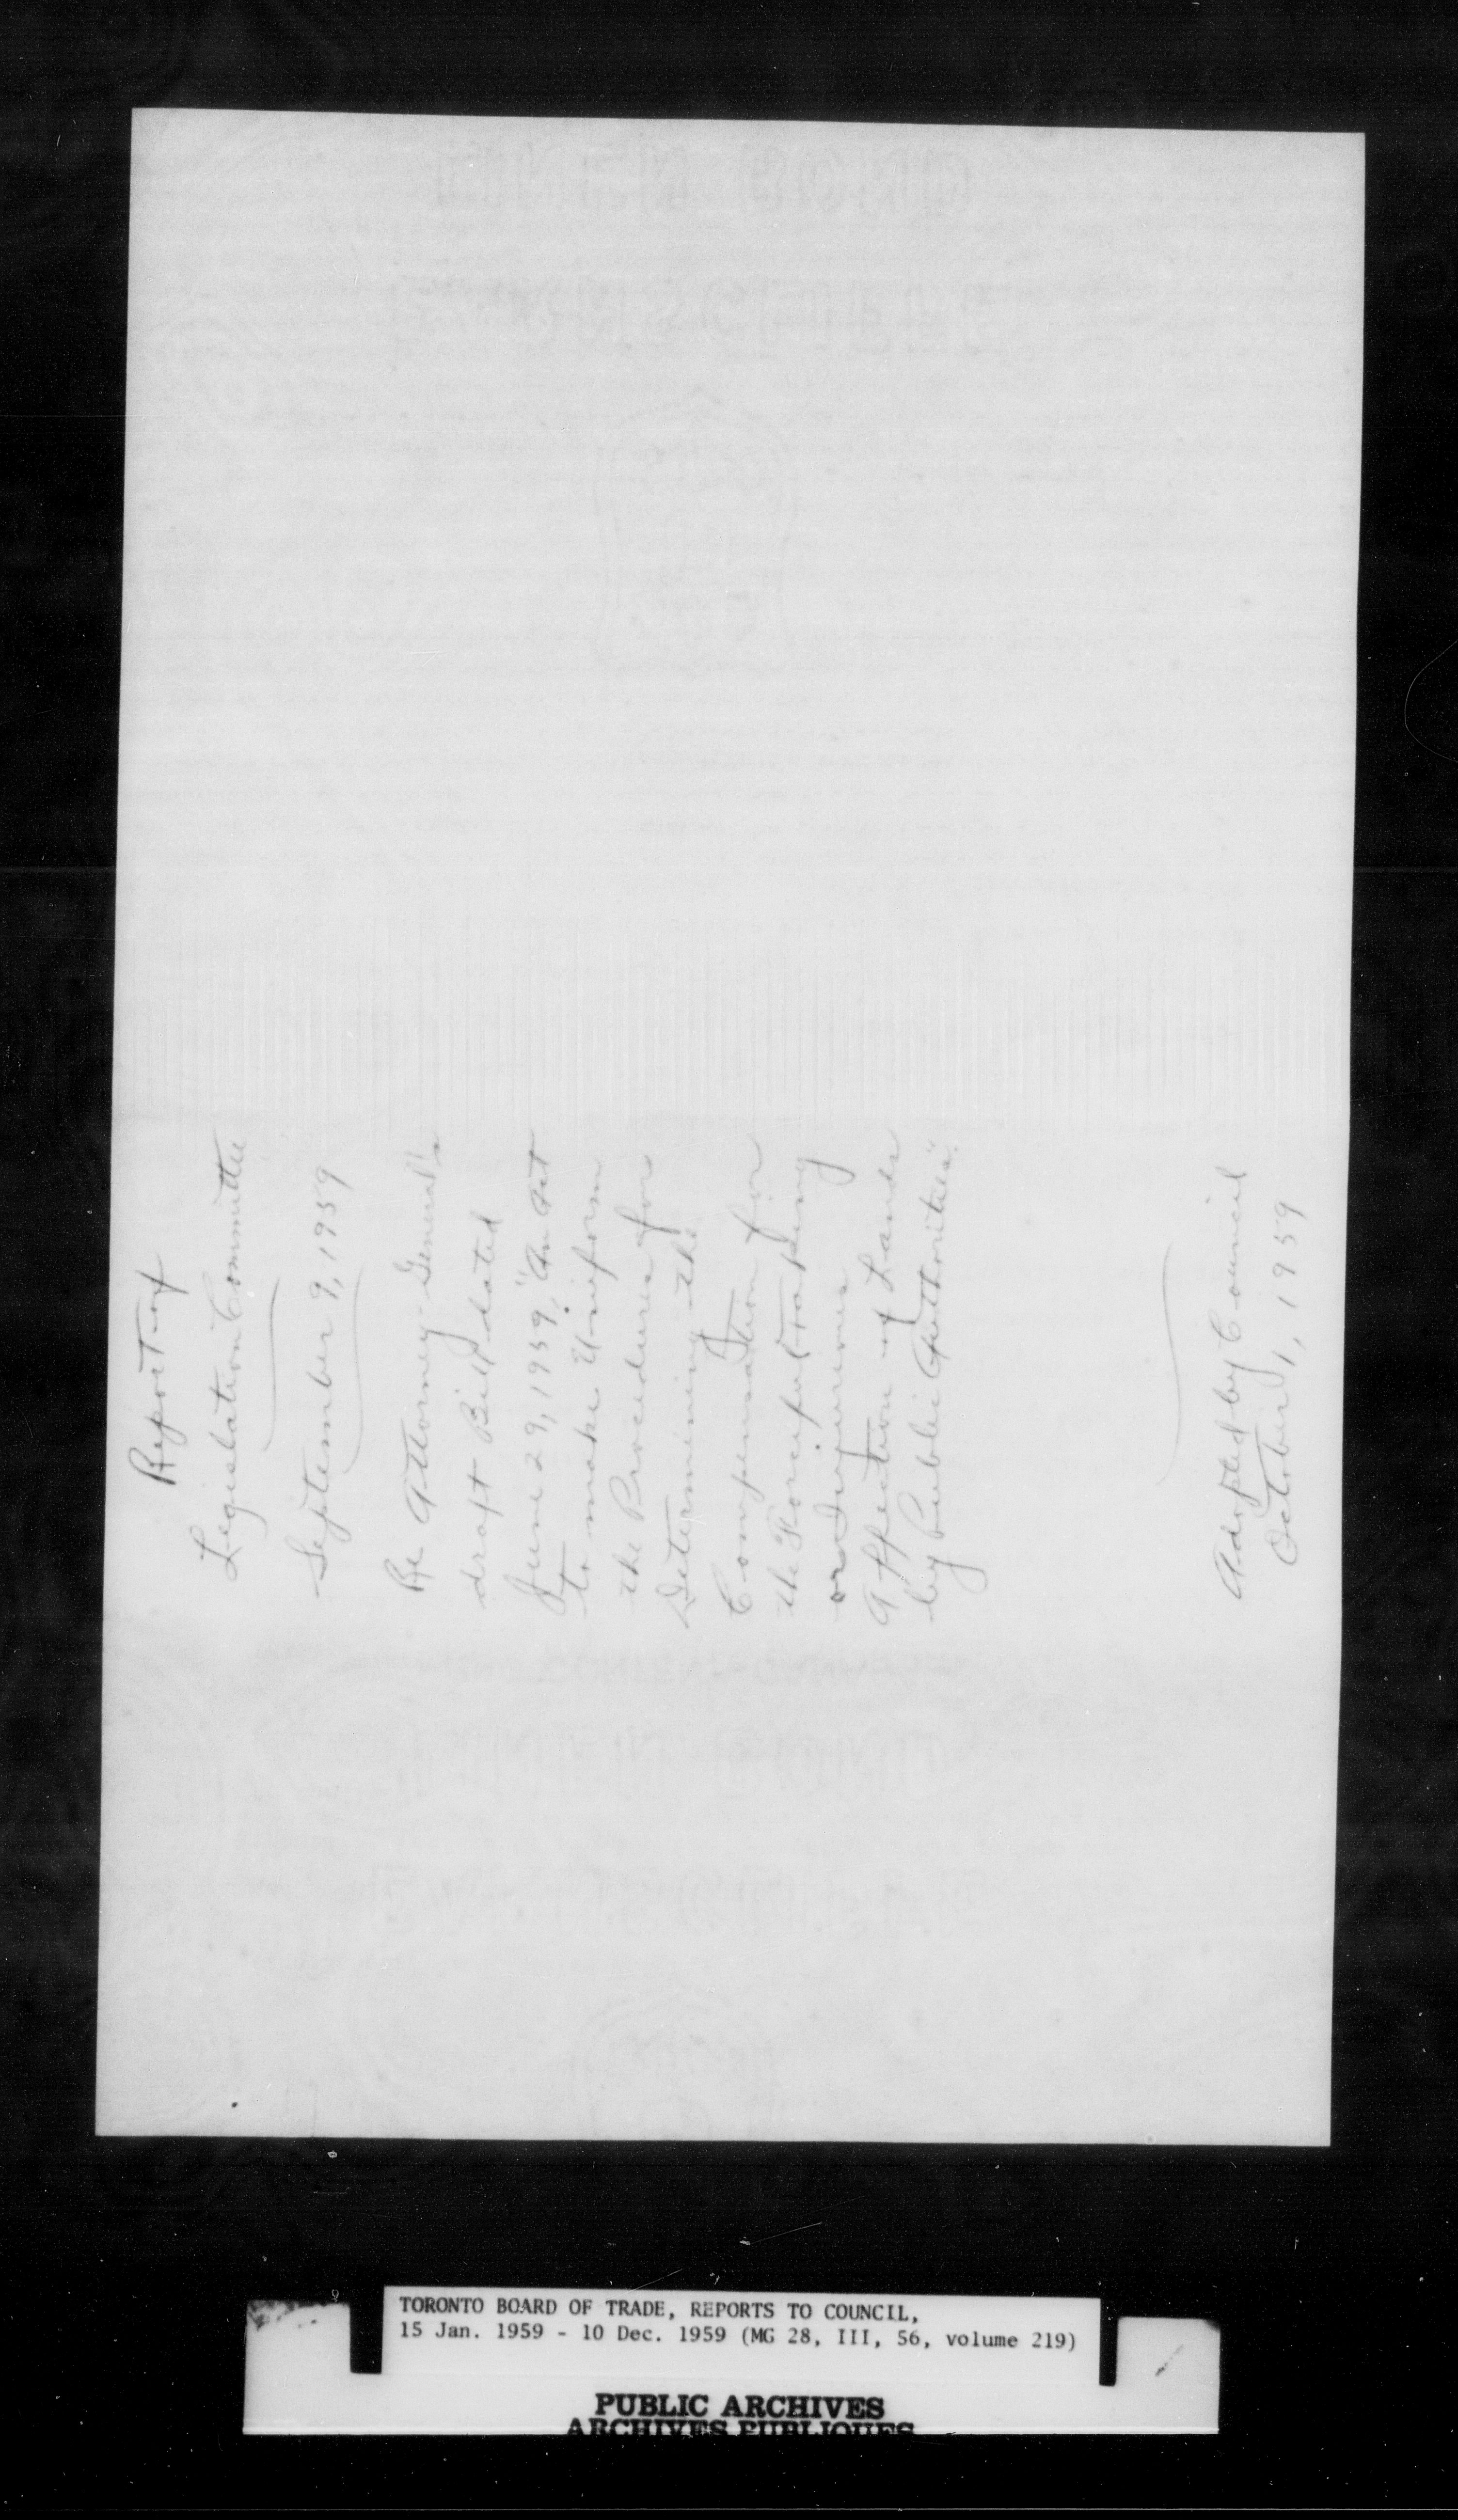 Report of
Legislation Committee
September 9, 1959
Re Attorney-General's
draft Bill dated
June 29, 1959, "An Act
to make Uniform
the Procedures for
Determining the
Compensation for
the Forceful Taking
or Injurious
Affection of Lands
by Public Authorities".
Adopted by Council
October 1, 1959
TORONTO BOARD OF TRADE, REPORTS TO COUNCIL,
15 Jan. 1959 - 10 Dec. 1959 (MG 28, III, 56, volume 219)
PUBLIC ARCHIVES
ARCHIVES PUBLIQUES